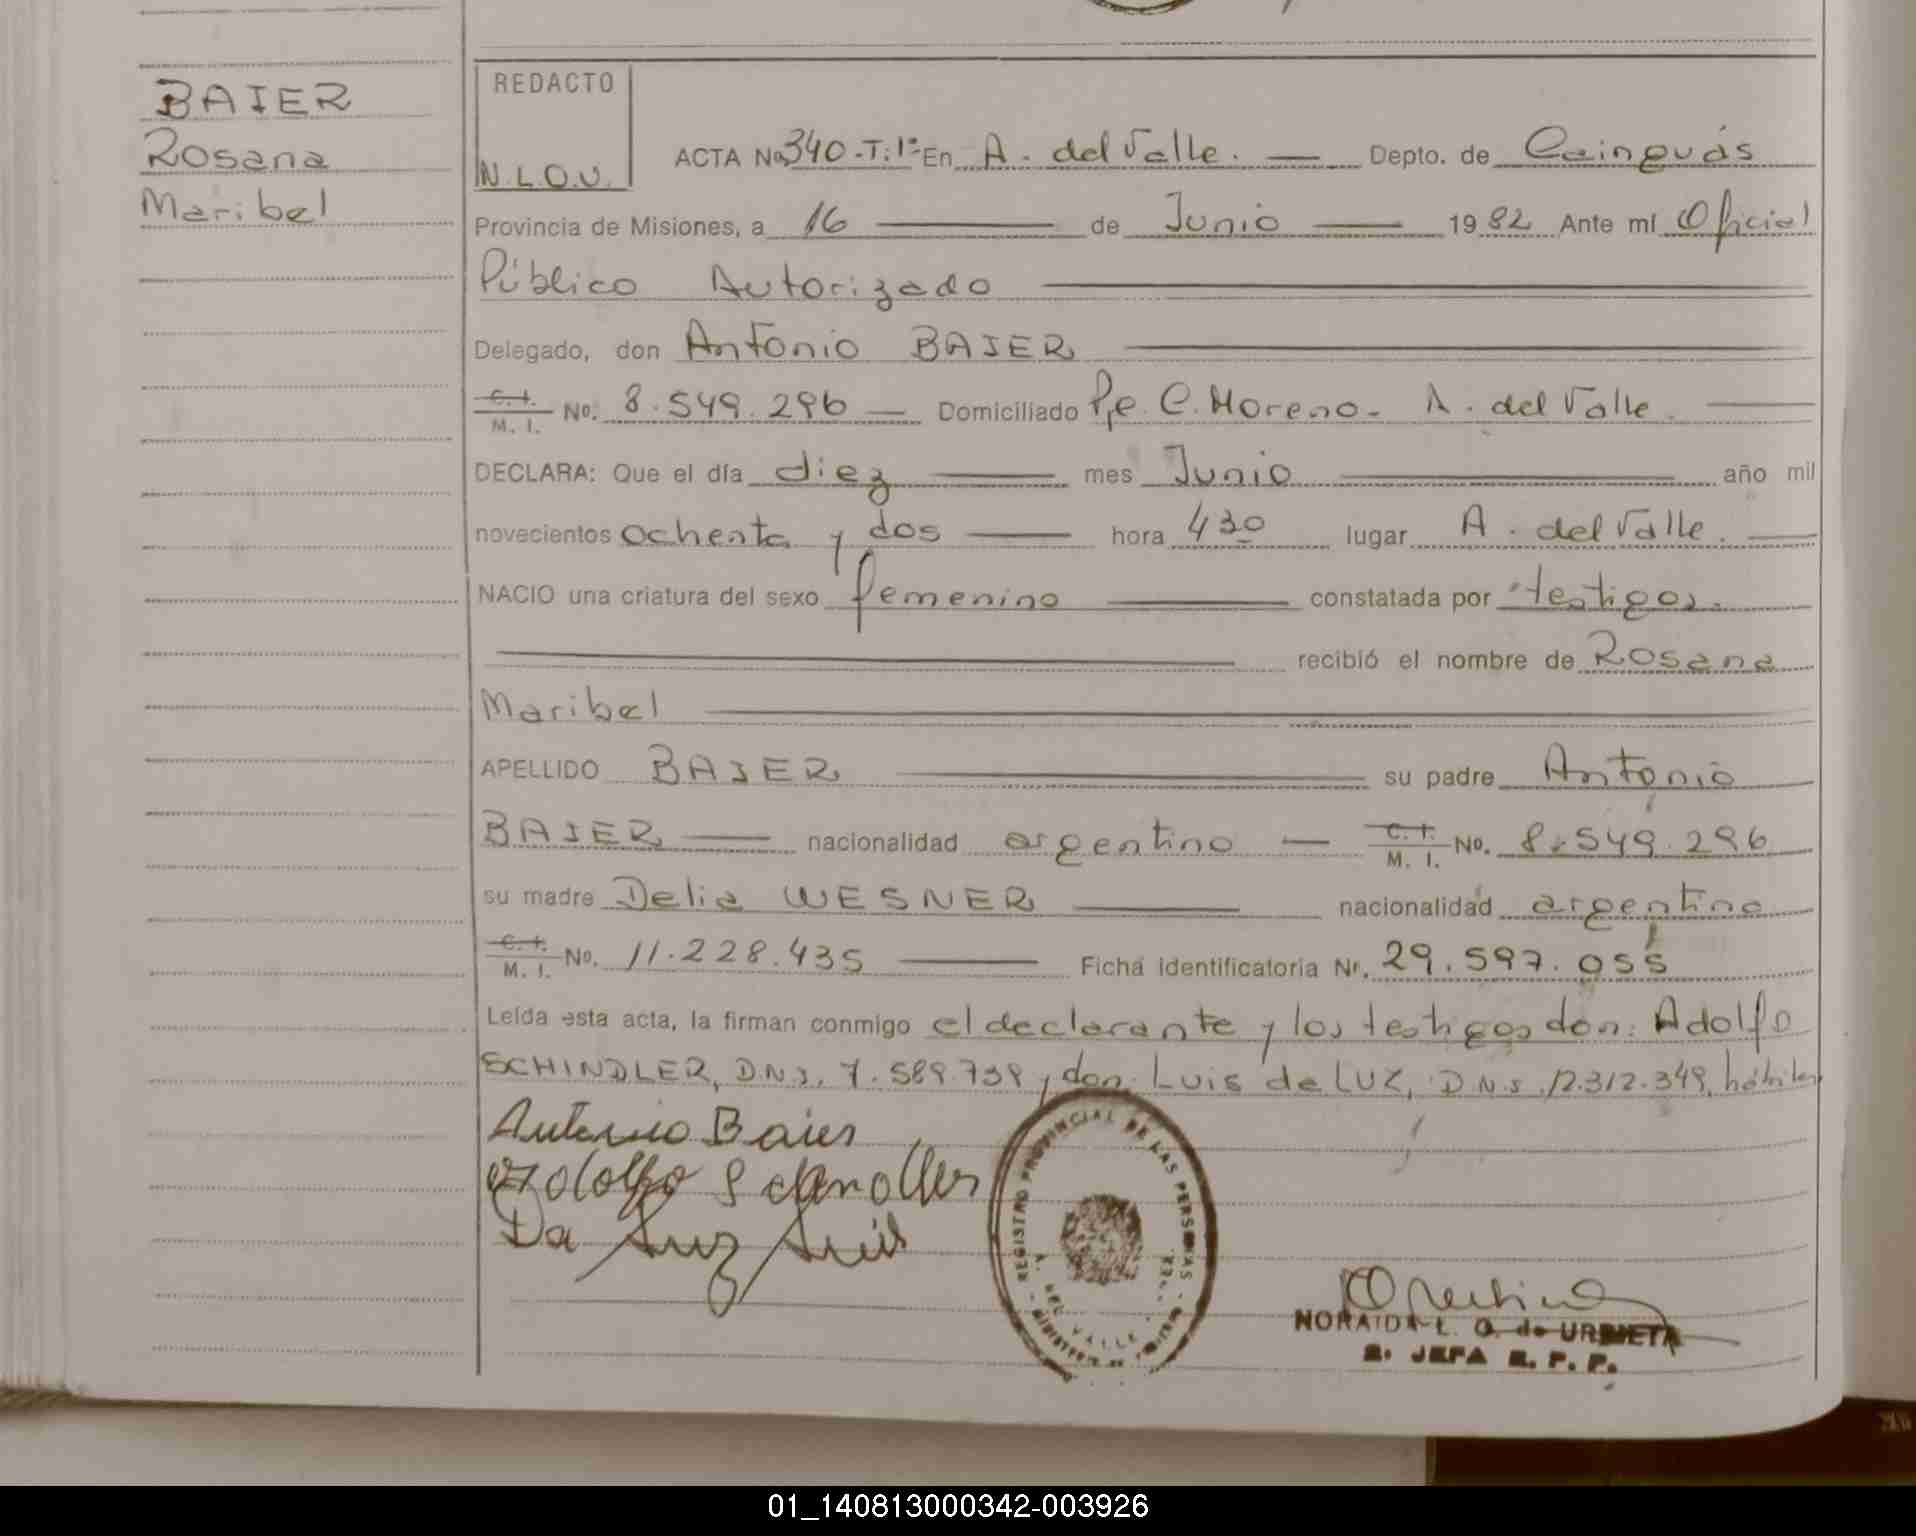 BAIER
Rosana
Maribel
REDACTO
N.L.O.U.
ACTA No. 340-T:1º En A. del Valle. Depto. de Cainguás
Provincia de Misiones, a 16 de Junio 1982 Ante mí Oficial
Público Autorizado
Delegado, don Antonio BAIER
C. I. / M. I. No. 8.549.296 Domiciliado Pje. C. Moreno - A. del Valle.
DECLARA: Que el día diez mes Junio año mil
novecientos ochenta y dos hora 4 30 lugar A. del Valle.
NACIO una criatura del sexo femenino constatada por testigos.
recibió el nombre de Rosana
Maribel
APELLIDO BAIER su padre Antonio
BAIER nacionalidad argentino C. I. / M. I. No. 8.549.296
su madre Delia WESNER nacionalidad argentina
C. I. / M. I. No. 11.228.435 Ficha identificatoria Nr. 29.597.055
Leída esta acta, la firman conmigo el declarante y los testigos don: Adolfo
SCHINDLER, D.N.I. 7.589.739 y don Luis da LUZ, D.N.I. 12.312.349, hábiles
Antonio Baier
Adolfo Schindler
Da Luz Luis
REGISTRO PROVINCIAL DE LAS PERSONAS
A. DEL VALLE
NORAIDA L. O. de URBIETA
JEFA R. P. P.
01_140813000342-003926